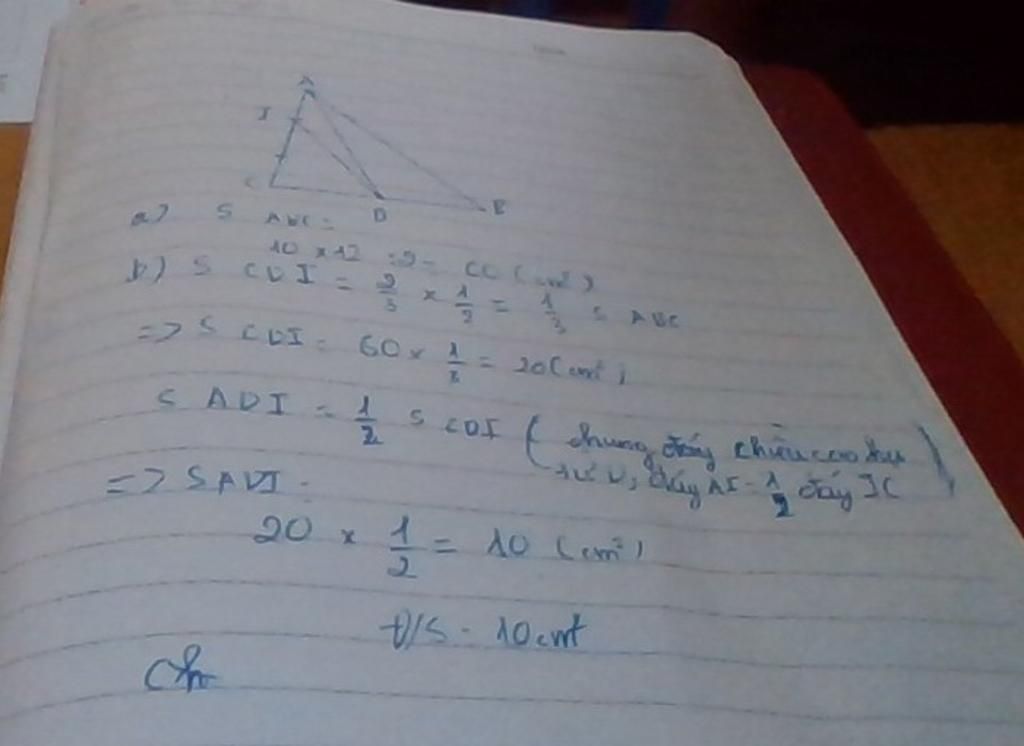 A
I
C
D
B
a) S ABC =
10 x 12 : 2 = 60 (cm²)
b) S CDI = 2/3 x 1/2 = 1/3 S ABC
=> S CDI = 60 x 1/3 = 20 (cm²)
S ADI = 1/2 S CDI ( chung đáy chiều cao
từ D, đáy AI = 1/2 đáy IC )
=> S ADI =
20 x 1/2 = 10 (cm²)
Đ/S = 10cm²